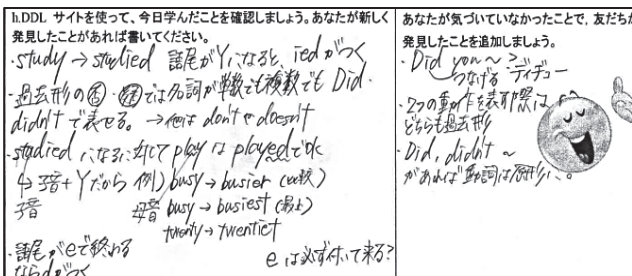 h.DDL サイトを使って、今日学んだことを確認しましょう。あなたが新しく
発見したことがあれば書いてください。
・study → studied 語尾がYになると、iedがつく
・過去形の否・疑では名詞が単数でも複数でも Did.
didn'tで表せる。→他は don'tやdoesn't
・studied になるに対して play は playedでOK
↳子音+Yだから 例) busy → busier (比較)
子音 母音 busy → busiest (最上)
twenty → twentiet
・語尾がeで終わる
ならdがつく
eは必ず付いて来る?
あなたが気づいていなかったことで、友だちが
発見したことを追加しましょう。
・Did you~?
つなげる ディデュー
・2つの動作を表す際は
どちらも過去形
・Did, didn't ~
があれば動詞は原形に。